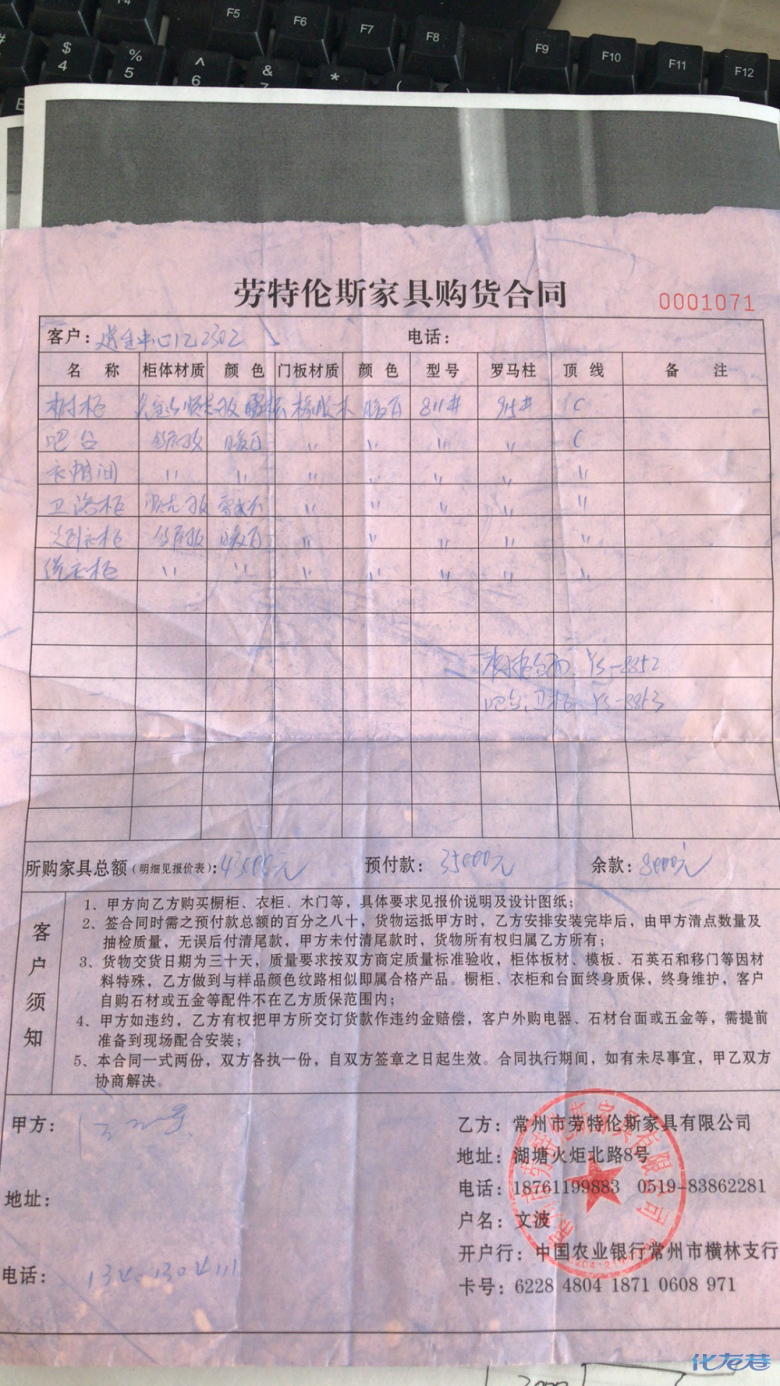 F5 F6 F7 F8 F9 F10 F11 F12
$ 4 % 5 ^ 6 & 7 * (
劳特伦斯家具购货合同
0001071
客户： 2302 电话：
名 称 柜体材质 颜 色 门板材质 颜 色 型 号 罗马柱 顶 线 备 注
橱柜 橡胶木 暖白 811# 95# C
吧台 暖白 〃 〃 〃 〃 C
衣帽间 〃 〃 〃 〃 〃 〃 〃
卫浴柜 〃 〃 〃 〃 〃
暖白 〃 〃 〃 〃 〃
〃 〃 〃 〃 〃 〃 〃
橱柜台面 YS-8852
吧台、卫柜 YS-8853
所购家具总额（明细见报价表）：43000元 预付款：35000元 余款：8000元
客户须知
1、甲方向乙方购买橱柜、衣柜、木门等，具体要求见报价说明及设计图纸；
2、签合同时需之预付款总额的百分之八十，货物运抵甲方时，乙方安排安装完毕后，由甲方清点数量及
抽检质量，无误后付清尾款，甲方未付清尾款时，货物所有权归属乙方所有；
3、货物交货日期为三十天，质量要求按双方商定质量标准验收，柜体板材、模板、石英石和移门等因材
料特殊，乙方做到与样品颜色纹路相似即属合格产品。橱柜、衣柜和台面终身质保，终身维护，客户
自购石材或五金等配件不在乙方质保范围内；
4、甲方如违约，乙方有权把甲方所交订货款作违约金赔偿，客户外购电器、石材台面或五金等，需提前
准备到现场配合安装；
5、本合同一式两份，双方各执一份，自双方签章之日起生效。合同执行期间，如有未尽事宜，甲乙双方
协商解决。
甲方：
地址：
电话：
乙方：常州市劳特伦斯家具有限公司
地址：湖塘火炬北路8号
电话：18761199883 0519-83862281
户名：文波
开户行：中国农业银行常州市横林支行
卡号：6228 4804 1871 0608 971
常州市劳特伦斯家具有限公司
化龙巷